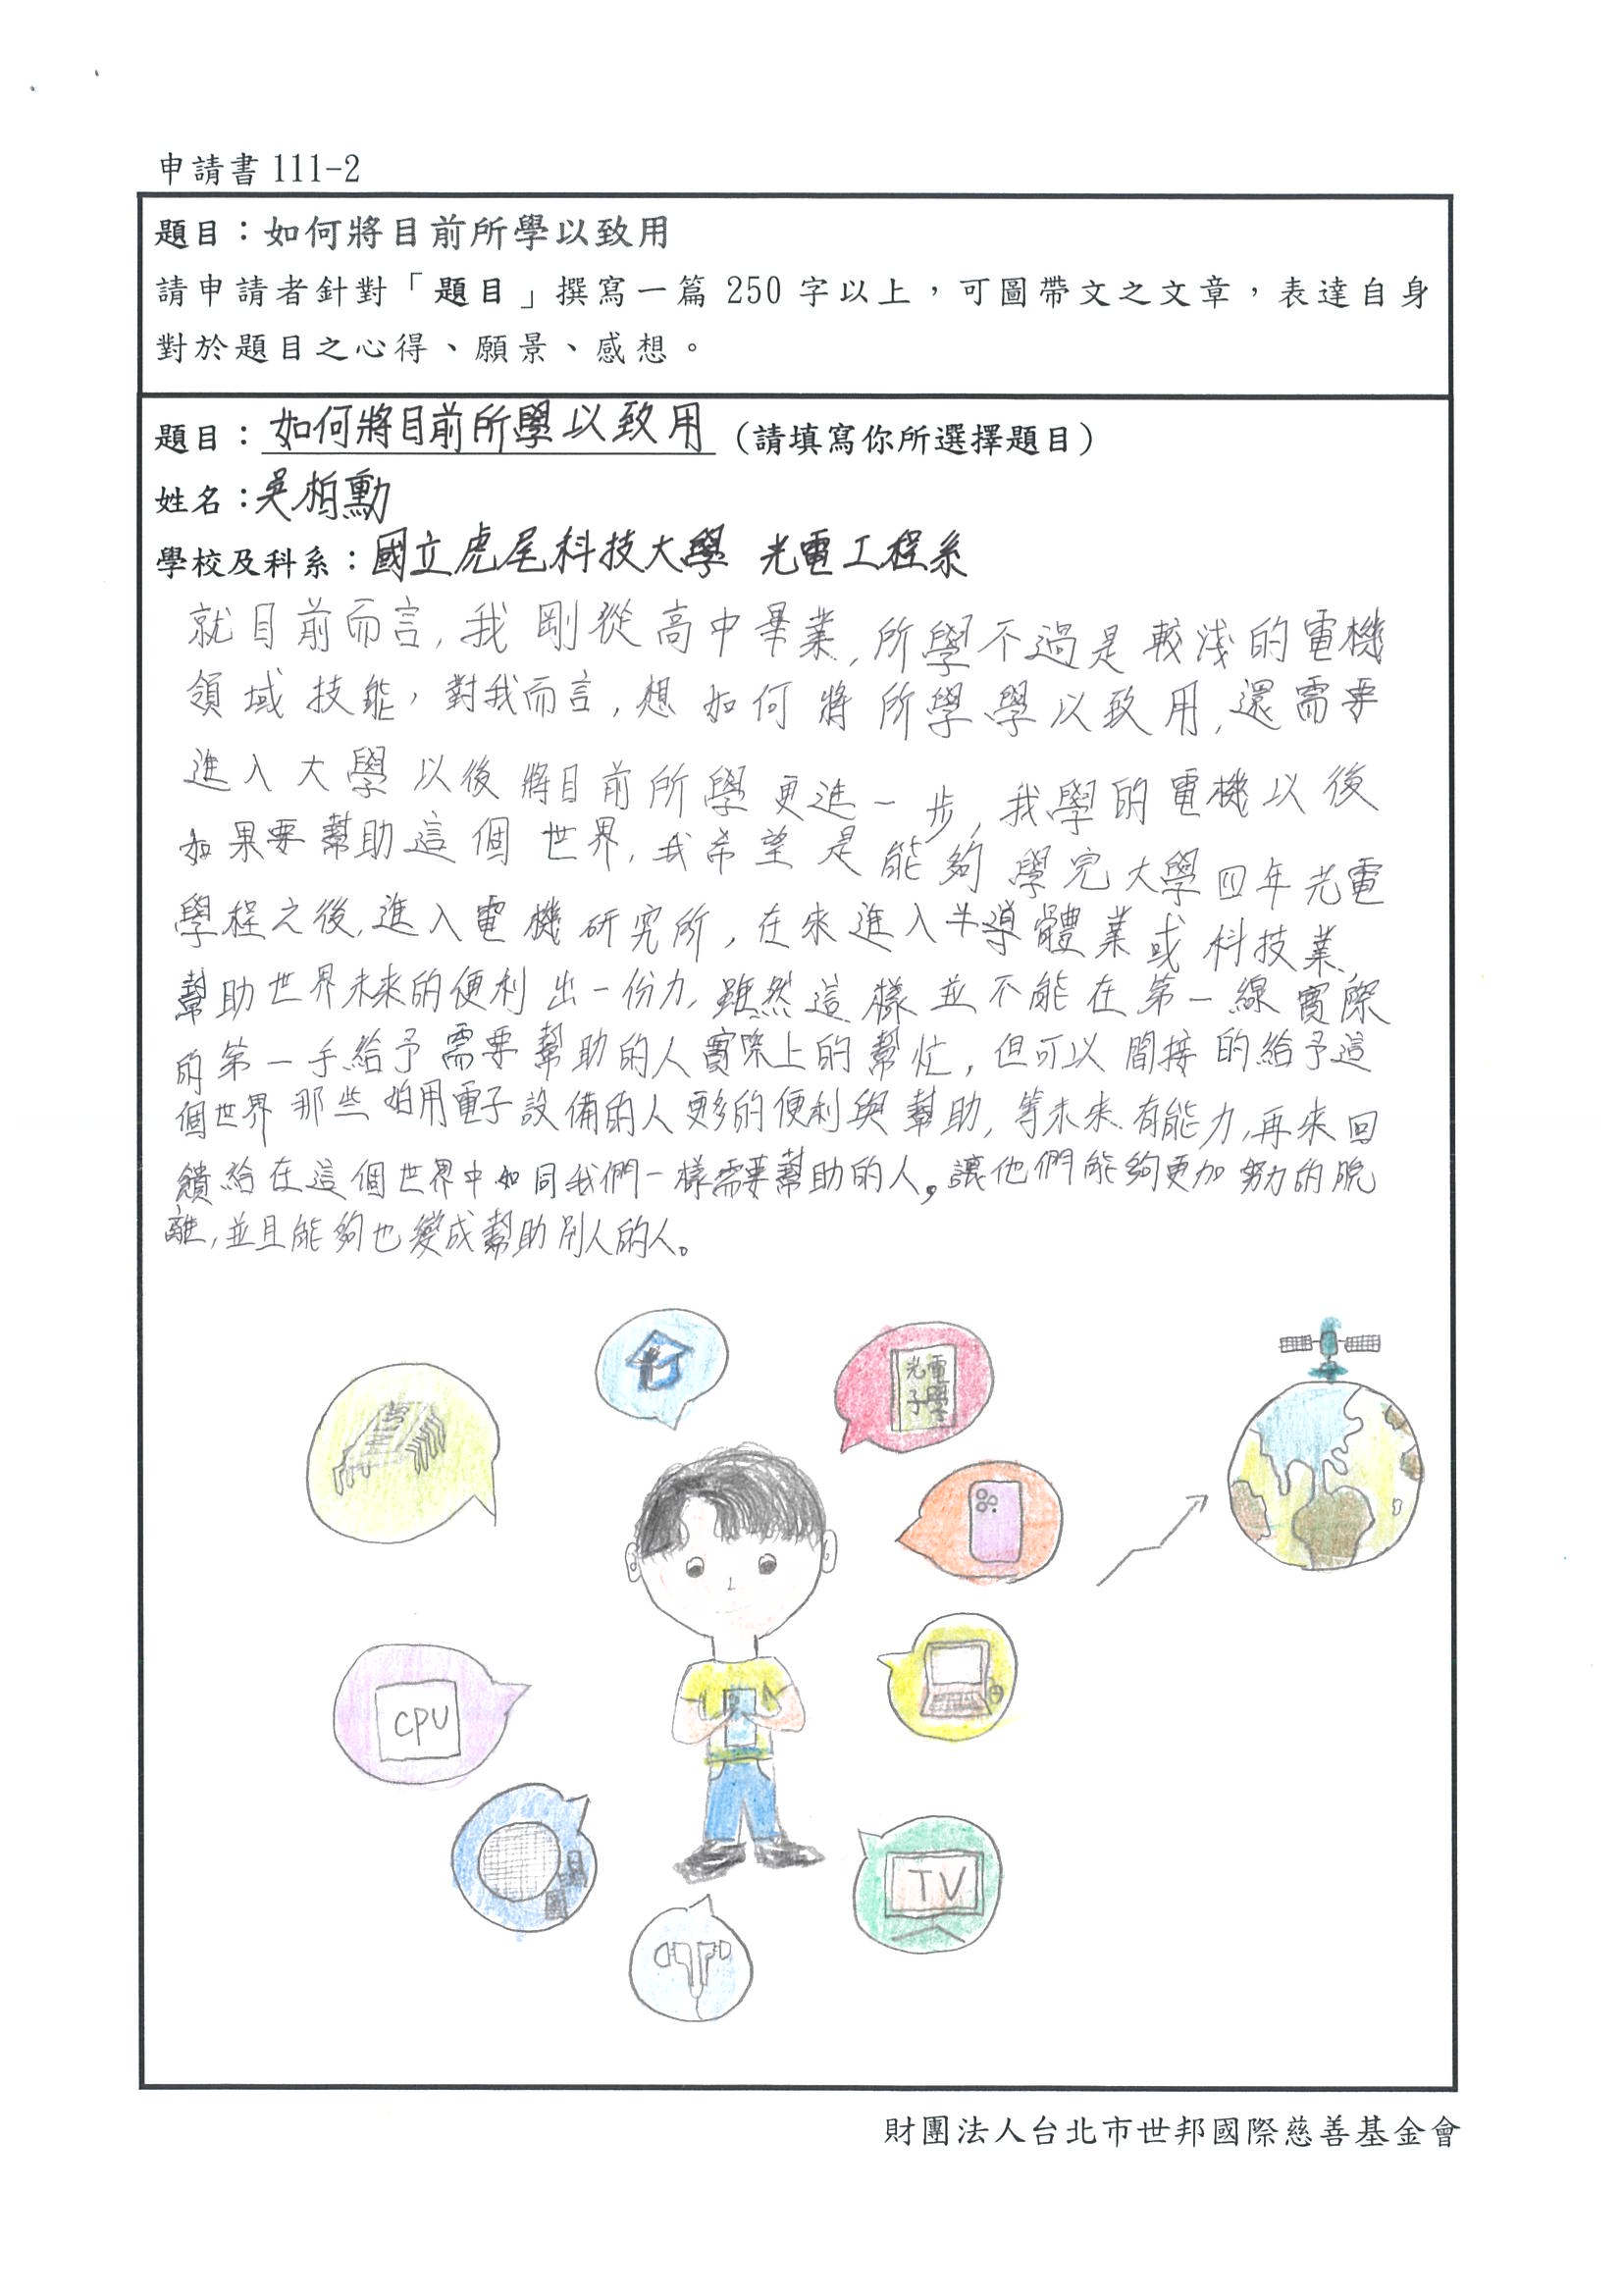 申請書 111-2
題目：如何將目前所學以致用
請申請者針對「題目」撰寫一篇 250 字以上，可圖帶文之文章，表達自身
對於題目之心得、願景、感想。
題目：如何將目前所學以致用（請填寫你所選擇題目）
姓名：吳柏勳
學校及科系：國立虎尾科技大學 光電工程系
就目前而言，我剛從高中畢業，所學不過是較淺的電機
領域技能，對我而言，想如何將所學學以致用，還需要
進入大學以後將目前所學更進一步，我學的電機以後
如果要幫助這個世界，我希望是能夠學完大學四年光電
學程之後，進入電機研究所，在來進入半導體業或科技業，
幫助世界未來的便利出一份力，雖然這樣並不能在第一線實際
的第一手給予需要幫助的人實際上的幫忙，但可以間接的給予這
個世界那些如用電子設備的人更多的便利與幫助，等未來有能力，再來回
饋給在這個世界中如同我們一樣需要幫助的人，讓他們能夠更加努力的脫
離，並且能夠也變成幫助別人的人。
光電
子學
CPU
TV
財團法人台北市世邦國際慈善基金會